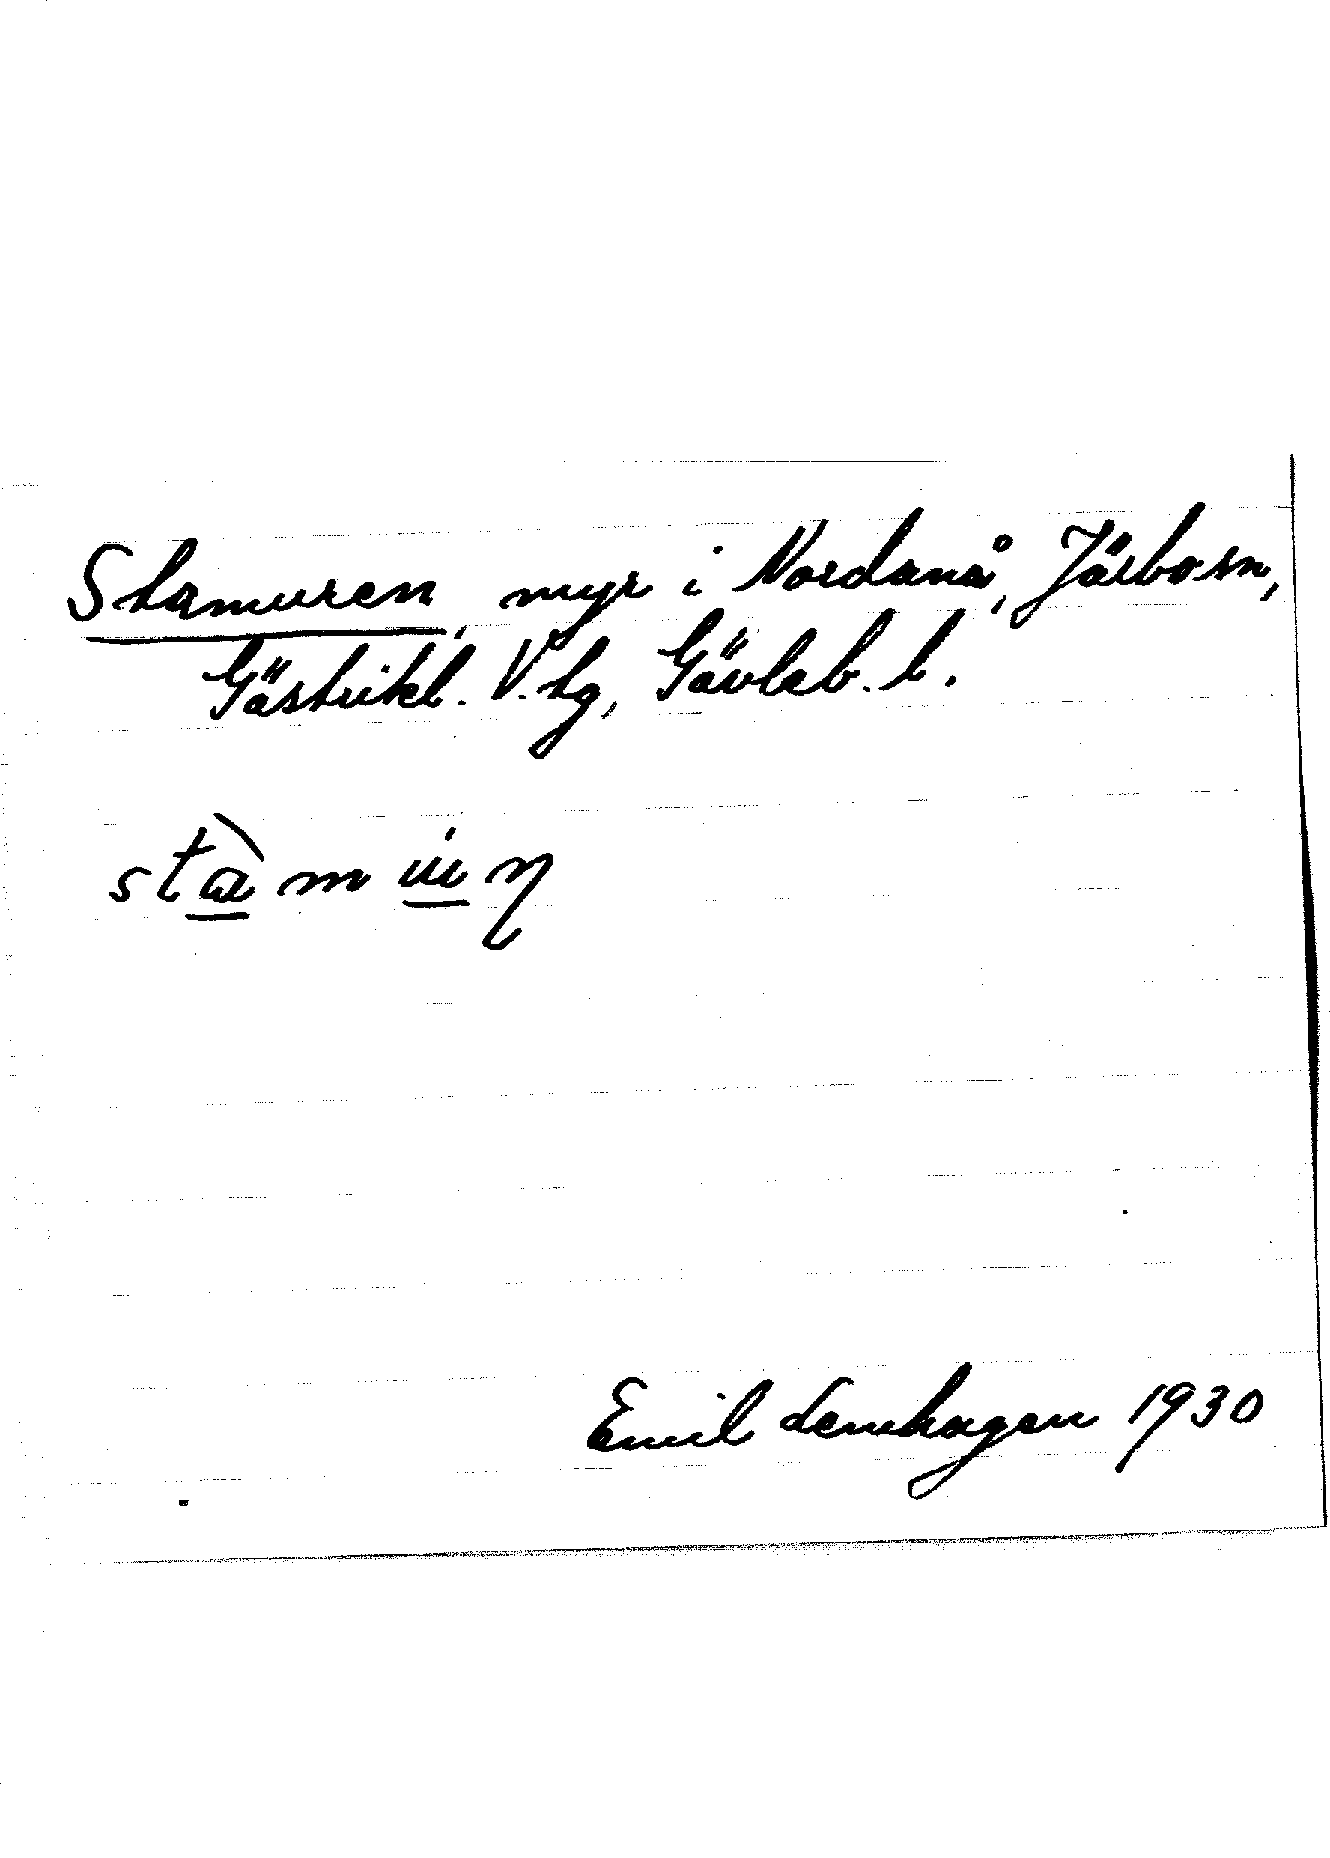 Stamuren, myr i Nordanå, Järbo sn,
Gästrikl. V. tg, Gävleb. l.
Emil Lenhagen 1930